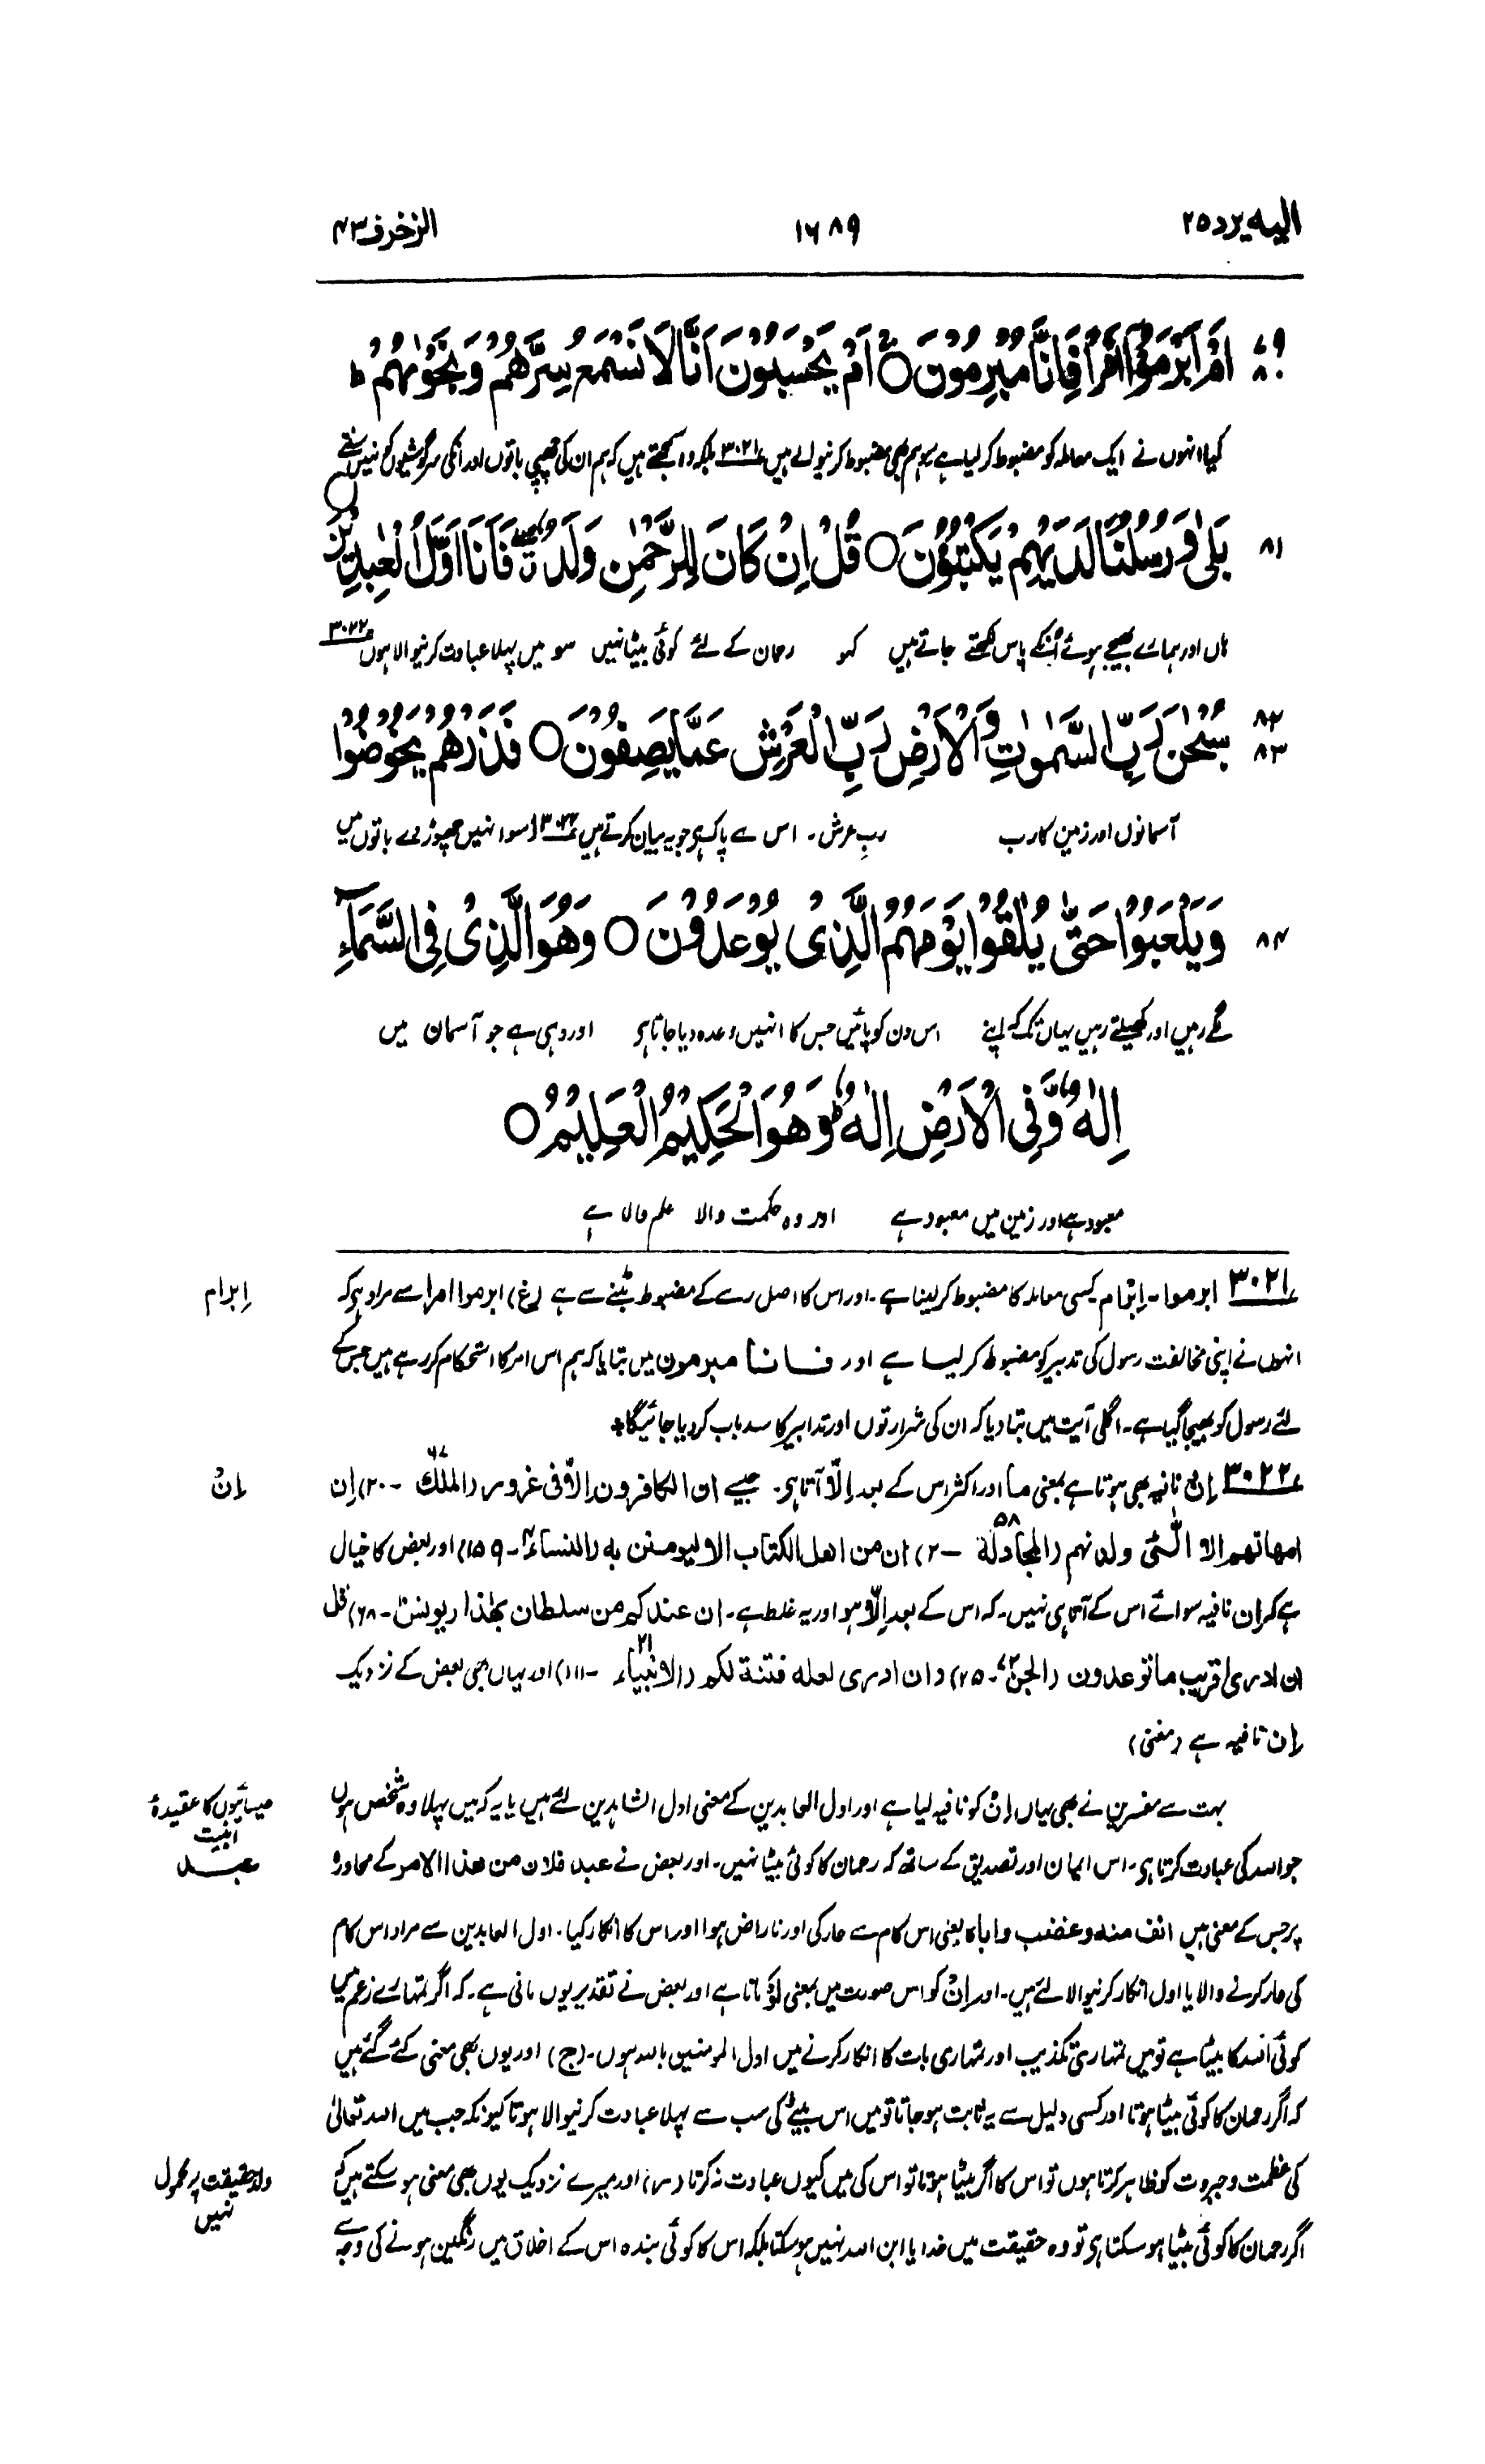 الیه یرد ۲۵
۱۶۸۹
الزخرف ۴۳
۷۹ ۸۰ اَمْ اَبْرَمُوْۤا اَمْرًا فَاِنَّا مُبْرِمُوْنَ ○ اَمْ یَحْسَبُوْنَ اَنَّا لَا نَسْمَعُ سِرَّهُمْ وَنَجْوٰىهُمْ ؕ
کیا انہوں نے ایک معاملہ کو مضبوط کرلیا ہے سو ہم بھی مضبوط کرنیوالے ہیں ۳۰۲۱ بلکہ وہ سمجھتے ہیں کہ ہم ان کی چھپی باتوں اور انکی سرگوشیوں کو نہیں سنتے
۸۱ بَلٰی وَرُسُلُنَا لَدَیْهِمْ یَكْتُبُوْنَ ○ قُلْ اِنْ كَانَ لِلرَّحْمٰنِ وَلَدٌ ۖ فَاَنَا اَوَّلُ الْعٰبِدِیْنَ ○
ہاں اور ہمارے بھیجے ہوئے اُنکے پاس لکھتے جاتے ہیں کہو رحمان کے لئے کوئی بیٹا نہیں سو میں پہلا عبادت کرنیوالا ہوں ۳۰۲۲
۸۲ ۸۳ سُبْحٰنَ رَبِّ السَّمٰوٰتِ وَالْاَرْضِ رَبِّ الْعَرْشِ عَمَّا یَصِفُوْنَ ○ فَذَرْهُمْ یَخُوْضُوْا
آسمانوں اور زمین کا رب ربِ عرش۔ اس سے پاک ہی جو یہ بیان کرتے ہیں سو انہیں چھوڑدے باتوں میں
۸۴ وَیَلْعَبُوْا حَتّٰی یُلٰقُوْا یَوْمَهُمُ الَّذِیْ یُوْعَدُوْنَ ○ وَهُوَ الَّذِیْ فِی السَّمَآءِ
لگے رہیں اور کھیلتے رہیں یہاں تک کہ اپنے اس دن کو پائیں جس کا انہیں وعدہ دیا جاتا ہی اور وہی ہے جو آسمان میں
اِلٰهٌ وَّفِی الْاَرْضِ اِلٰهٌ ؕ وَهُوَ الْحَكِیْمُ الْعَلِیْمُ ○
معبود ہے اور زمین میں معبود ہے اور وہ حکمت والا علم والا ہے
۳۰۲۱ ابرموا۔ اِبْرَام کسی معاملہ کا مضبوط کرلینا ہے۔ اور اس کا اصل رسے کے مضبوط بٹنے سے ہے (غ) ابرموا امرا سے مراد ہی کہ
اِبرام
انہوں نے اپنی مخالفت رسول کی تدبیر کو مضبوط کرلیا ہے اور فانا مبرمون میں بتایا کہ ہم اس امر کا استحکام کررہے ہیں جس کے
لئے رسول کو بھیجا گیا ہے۔ اگلی آیت میں بتا دیا کہ ان کی شرارتوں اور تدابیر کا سدباب کردیا جائیگا+
۳۰۲۲ اِن نافیہ بھی ہوتا ہے بمعنی ما اور اکثر اس کے بعد اِلّا آتا ہی۔ جیسے ان الکافرون اِلّا فی غرور (الملک ۶۷۔۲۰) اِن
اِنْ
امهاتهم الا الّٰئی ولدنهم (المجادلة ۵۸۔۲) ان من اهل الکتاب الا لیومنن به (النساء ۴۔۱۵۹) اور بعض کا خیال
ہے کہ ان نافیہ سوائے اس کے آتا ہی نہیں۔ کہ اس کے بعد اِلّا ہو اور یہ غلط ہے۔ ان عندکم من سلطان بهٰذا (یونس ۱۰۔۶۸) قل
ان ادری اقریب ما توعدون (الجن ۷۲۔۲۵) و ان ادری لعله فتنة لکم (الانبیاء ۲۱۔۱۱۱) اور یہاں بھی بعض کے نزدیک
اِن نافیہ ہے (مغنی)
بہت سے مفسرین نے بھی یہاں اِنْ کو نافیہ لیا ہے اور اول العابدین کے معنی اول الشاہدین لئے ہیں یا یہ کہ میں پہلا وہ شخص ہوں
عیسائیوں کا عقیدۂ ابنیت
جو اللہ کی عبادت کرتا ہی۔ اس ایمان اور تصدیق کے ساتھ کہ رحمان کا کوئی بیٹا نہیں۔ اور بعض نے عبد فلان من هذا الامر کے محاورہ
عبد
پر جس کے معنی ہیں انف منه و غضب و اباه یعنی اس کام سے عار کی اور ناراض ہوا اور اس کا انکار کیا۔ اول العابدین سے مراد اس کام
کی عار کرنے والا یا اول انکار کرنیوالا لئے ہیں۔ اور اِنْ کو اس صورت میں بمعنی لَوْ مانا ہے اور بعض نے تقدیر یوں مانی ہے۔ کہ اگر تمہارے زعم میں
کوئی اللہ کا بیٹا ہے تو میں تمہاری تکذیب اور تمہاری بات کا انکار کرنے میں اول المومنین باللہ ہوں۔ (ج) اور یوں بھی معنی کئے گئے ہیں
کہ اگر رحمان کا کوئی بیٹا ہوتا اور کسی دلیل سے یہ ثابت ہو جاتا تو میں اس بیٹے کی سب سے پہلا عبادت کرنیوالا ہوتا کیونکہ جب میں اللہ تعالیٰ
کی عظمت و جبروت کو ظاہر کرتا ہوں تو اس کا اگر بیٹا ہوتا تو اس کی میں کیوں عبادت نہ کرتا (ر) اور میرے نزدیک یوں بھی معنی ہو سکتے ہیں کہ
ولد حقیقت پر محمول نہیں
اگر رحمان کا کوئی بیٹا ہو سکتا ہی تو وہ حقیقت میں خدا یا ابن اللہ نہیں ہو سکتا بلکہ اس کا کوئی بندہ اس کے اخلاق میں رنگین ہونے کی وجہ سے